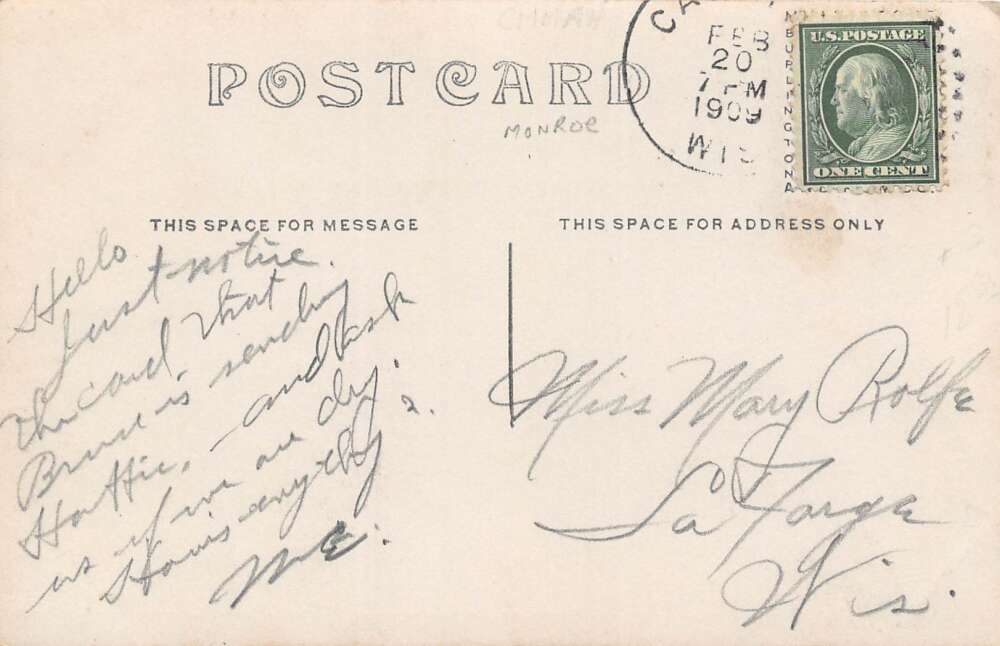 POSTCARD
MONROE
FEB
20
7 PM
1909
WIS
U.S. POSTAGE
ONE CENT
THIS SPACE FOR MESSAGE
THIS SPACE FOR ADDRESS ONLY
Hello
Just notice
the card that
Bruce is sending
Hattie, and ask
us if we are dry.
How is anything
ME.
Miss Mary Rolfe
La Farge
Wis.